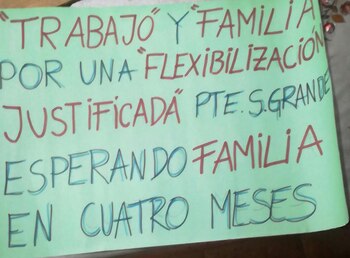 "TRABAJO" Y "FAMILIA"
POR UNA "FLEXIBILIZACIÓN
JUSTIFICADA" PTE. S. GRANDE
ESPERANDO FAMILIA
EN CUATRO MESES